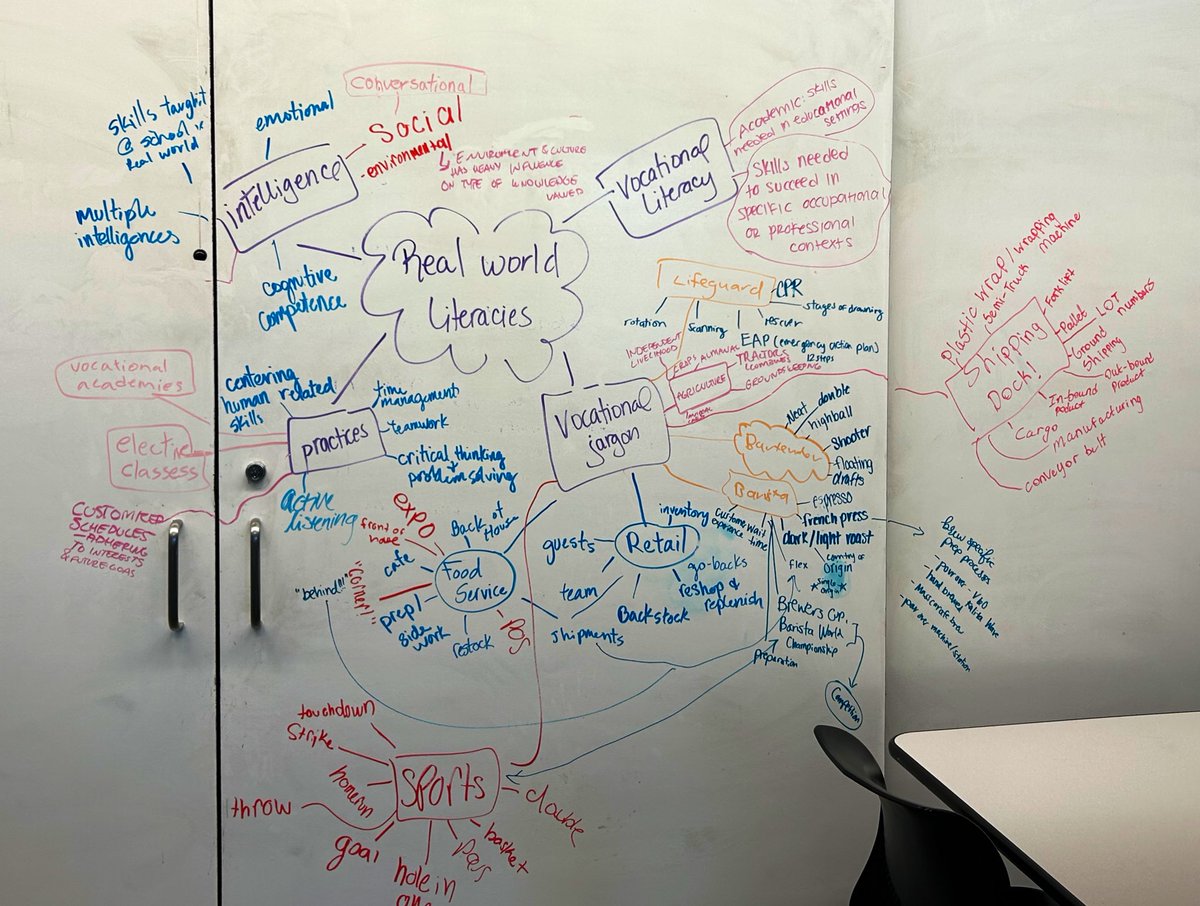 skills taught
@ school in
real world
emotional
conversational
social
environmental
↳ ENVIROMENT & CULTURE
HAS HEAVY INFLUENCE
ON TYPE OF KNOWLEDGE
VALUED
intelligence
multiple
intelligences
cognitive
competence
Vocational
Literacy
Academic skills
needed in educational
settings
Skills needed
to succeed in
specific occupational
or professional
contexts
Real world
Literacies
Lifeguard
CPR
stages of drowning
rescuer
EAP (emergency action plan)
12 steps
scanning
rotation
INDEPENDENT
LIVELIHOOD
AGRICULTURE
TRACTORS
COMBINES
GROUNDSKEEPING
Plastic wrap/wrapping
machine
Semi-Truck
Shipping
Dock!
Forklift
Pallet
LOT
numbers
Ground
Shipping
Out-bound
Product
In-bound
product
Cargo
manufacturing
conveyor belt
vocational
academies
elective
classess
CUSTOMIZED
SCHEDULES
- ADHERING
TO INTERESTS
& FUTURE GOALS
centering
human related
skills
practices
time
management
teamwork
critical thinking
+
problem solving
active
listening
Vocational
jargon
Bartender
Neat
double
highball
Shooter
floating
drafts
Barista
espresso
french press
dark/light roast
country of
origin
*single*
origin
flex
customer wait
time
Brewers Cup,
Barista World
Championship
preparation
Competition
brew specific
prep processes
- pourover V60
- hand brewed Kalita Wave
- pour over machine/station
Food
Service
expo
front of
house
Back of
House
cafe
"Corner!!"
"behind!!"
prep
side
work
restock
POS
shipments
Retail
inventory
guests
team
Backstock
go-backs
reshop &
replenish
Sports
touchdown
Strike
homerun
throw
goal
hole in
pass
basket
double